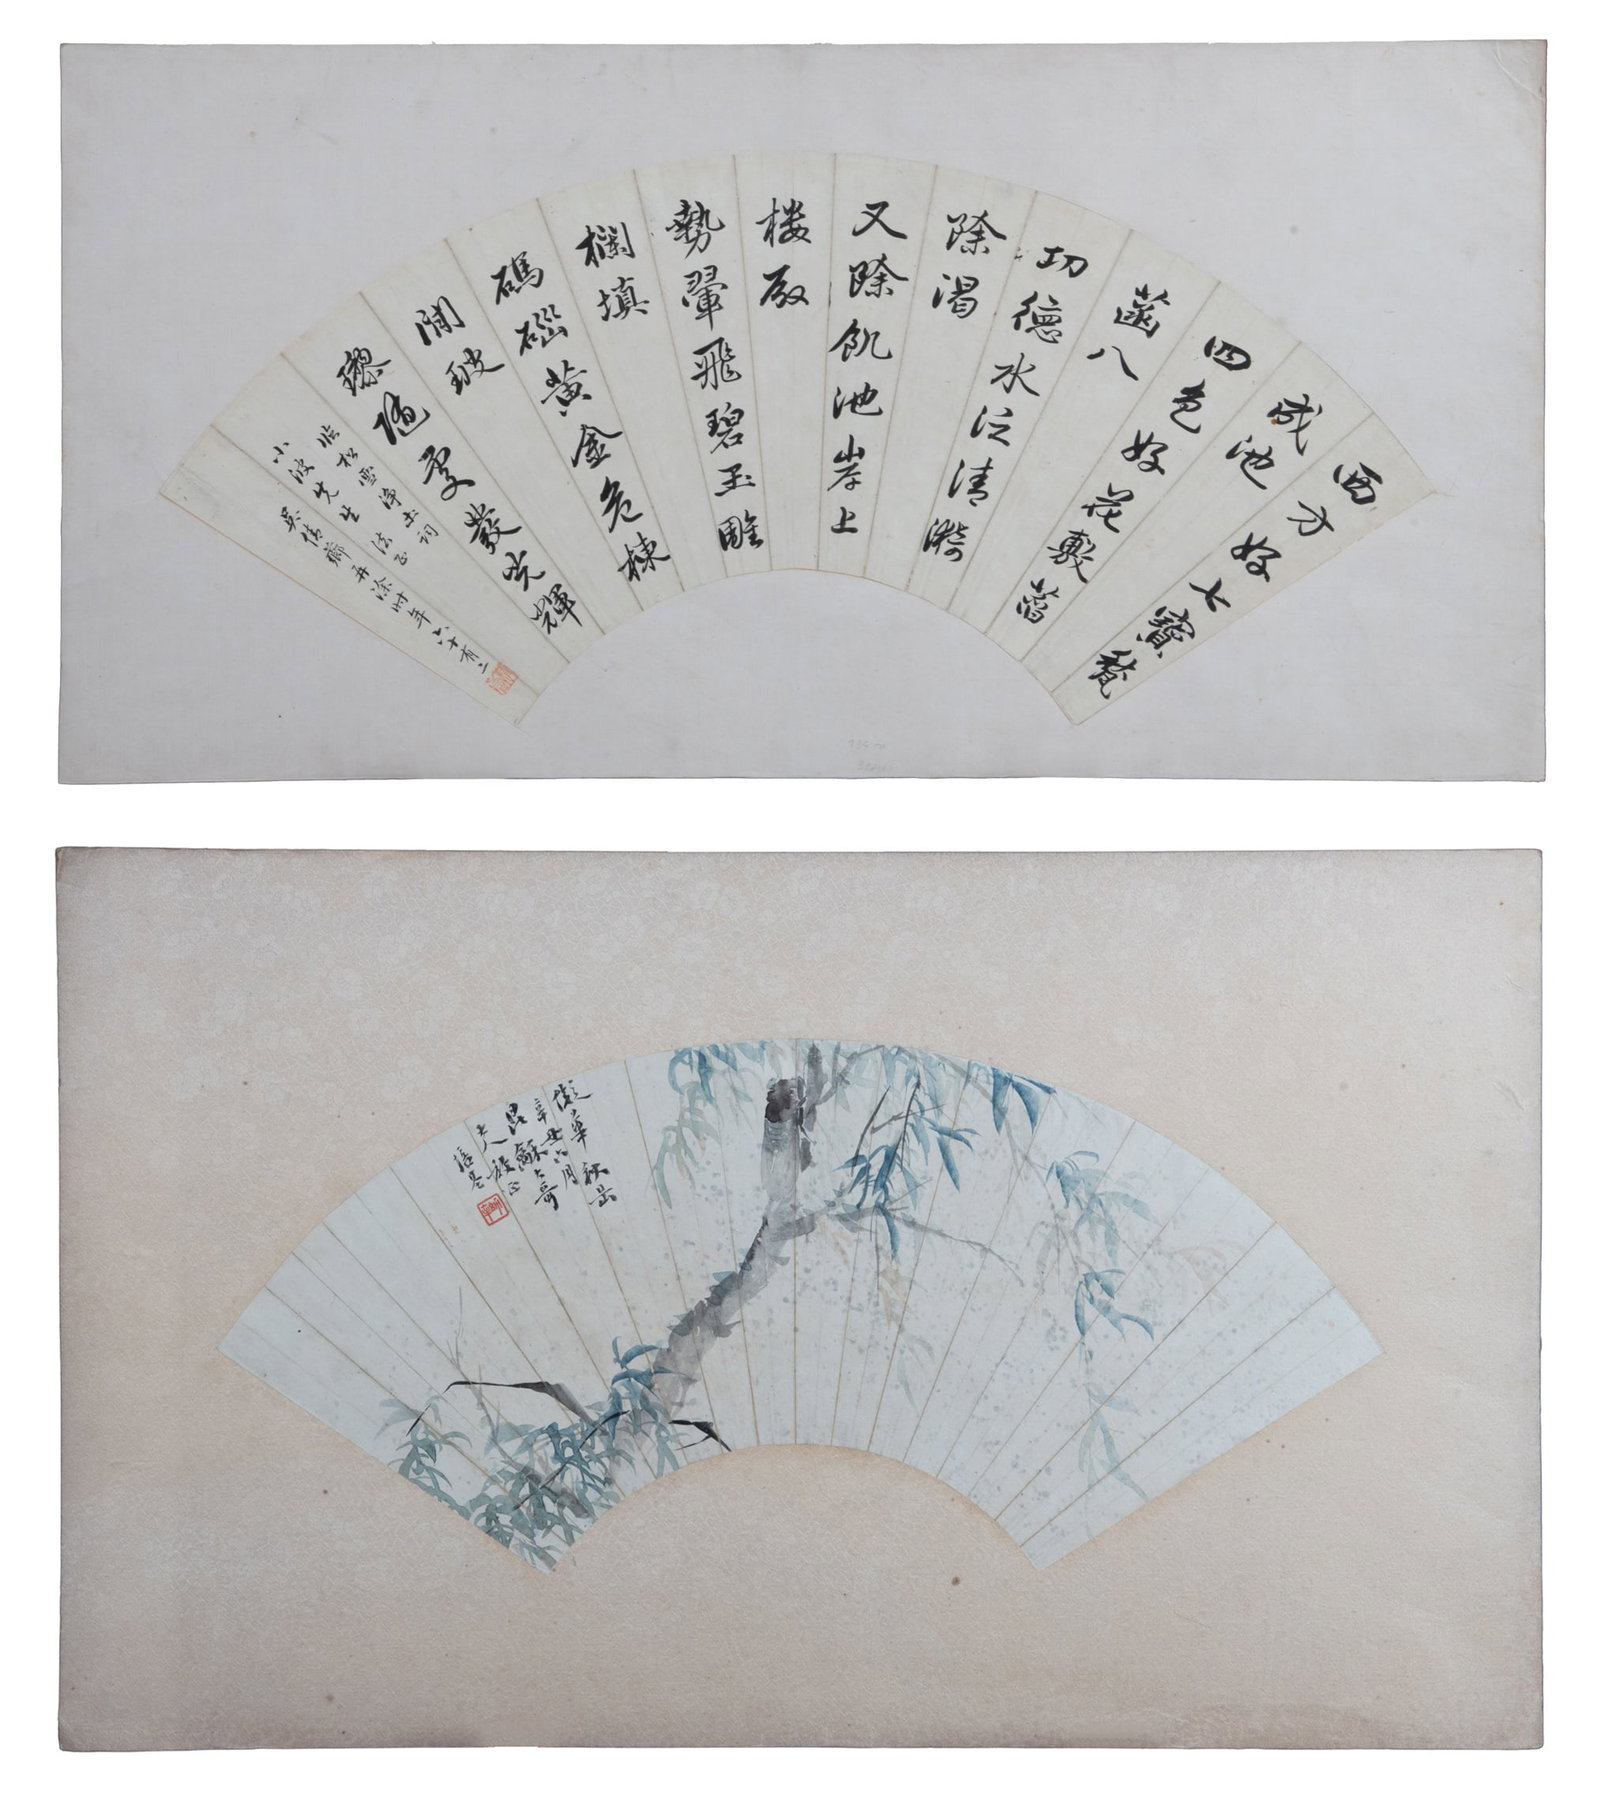 西方好七寶甃
成池
四色好花敷萏
菡八
功德水泛清漪
除渴
又除飢池岸上
楼殿
勢翬飛碧玉雕
欄填
碼碯黃金危棟
間玻
瓈隨處發光輝
臨松雪淨土詞
小波先生 法正
吳倩薌 時年六十有二
擬華秋岳
辛丑六月
龢大哥
大人 正